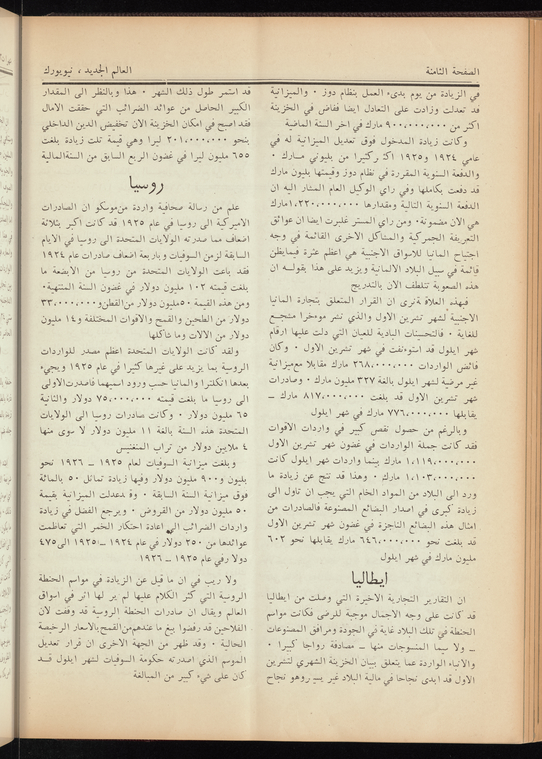 الصفحة الثامنة
العالم الجديد ، نيويورك
في الزيادة من يوم بدىء العمل بنظام دوز ٠ والميزانية
قد تعدلت وزادت على التعادل ايضا ففاض في الخزينة
اكثر من ٩٠٠٬٠٠٠٬٠٠٠ مارك في اخر السنة الماضية
وكانت زيادة المدخول فوق تعديل الميزانية له في
عامي ١٩٢٤ و١٩٢٥ اكثر كثيرا من بليوني مارك ٠
والدفعة السنوية المقررة في نظام دوز وقيمتها بليون مارك
قد دفعت بكاملها وفي راي الوكيل العام المشار اليه ان
الدفعة السنوية التالية ومقدارها ١٬٢٢٠٬٠٠٠٬٠٠٠مارك
هي الآن مضمونة٠ ومن راي المستر غلبرت ايضا ان عوائق
التعريفة الجمركية والمشاكل الاخرى القائمة في وجه
اجتياح المانيا للاسواق الاجنبية هي اعظم عثرة فيمايظن
قائمة في سبيل البلاد الالمانية ويزيد على هذا بقولـه ان
هذه الصعوبة تتلطف الان بالتدريج
فبهذه العلاقة نرى ان القرار المتعلق بتجارة المانيا
الاجنبية لشهر تشرين الاول والذي نشر موءخرا مشجـع
للغاية ٠ فالتحسينات البادية للعيان التي دلت عليها ارقام
شهر ايلول قد استوءنفت في شهر تشرين الاول ٠ وكان
فائض الواردات ٢٦٨٬٠٠٠٬٠٠٠ مارك مقابلا مع ميزانية
غير مرضية لشهر ايلول بالغة ٣٢٧ مليون مارك ٠ وصادرات
شهر تشرين الاول قد بلغت ٨١٧٬٠٠٠٬٠٠٠ مارك ـ
يقابلها ٧٧٦٬٠٠٠٬٠٠٠ مارك في شهر ايلول
وبالرغم من حصول نقص كبير في واردات الاقوات
فقد كانت جملة الواردات في غضون شهر تشرين الاول
١٬١١٩٬٠٠٠٬٠٠٠ مارك بينما واردات شهر ايلول كانت
١٬١٠٣٬٠٠٠٬٠٠٠ مارك ٠ وهذا قد نتج عن زيادة ما
ورد الى البلاد من المواد الخام التي يجب ان تاول الى
زيادة كبرى في اصدار البضائع المصنوعة فالصادرات من
امثال هذه البضائع الناجزة في غضون شهر تشرين الاول
قد بلغت نحو ٦٤٦٬٠٠٠٬٠٠٠ مارك يقابلها نحو ٦٠٢
مليون مارك في شهر ايلول
ايطاليا
ان التقارير التجارية الاخيرة التي وصلت من ايطاليا
قد كانت على وجه الاجمال موجبة للرضى فكانت مواسم
الحنطة في تلك البلاد غاية في الجودة ومرافق المصنوعات
ـ ولا سيما المنسوجات منها ـ مصادفة رواجا كبيرا ٠
والانباء الواردة عما يتعلق ببيان الخزينة الشهري لتشرين
الاول قد ابدى نجاحا في مالية البلاد غير يسير وهو نجاح
قد استمر طول ذلك الشهر ٠ هذا وبالنظر الى المقدار
الكبير الحاصل من عوائد الضرائب التي حققت الامال
فقد اصبح في امكان الخزينة الان تخفيض الدين الداخلي
بنحو ٢٠١٬٠٠٠٬٠٠٠ ليرا وهي قيمة تلت زيادة بلغت
٦٥٥ مليون ليرا في غضون الربع السابق من السنة المالية
روسيا
علم من رسالة صحافية واردة من موسكو ان الصادرات
الاميركية الى روسيا في عام ١٩٢٥ قد كانت اكبر بثلاثة
اضعاف مما صدرته الولايات المتحدة الى روسيا في الايام
السابقة لزمن السوفيات وباربعة اضعاف صادرات عام ١٩٢٤
فقد باعت الولايات المتحدة من روسيا من الابضعة ما
بلغت قيمته ١٠٢ مليون دولار في غضون السنة المنتهية٠
ومن هذه القيمة ٥٠مليون دولار من القطن و٣٣٬٠٠٠٬٠٠٠
دولار من الطحين والقمح والاقوات المختلفة و١٤ مليون
دولار من الالات وما شاكلها
ولقد كانت الولايات المتحدة اعظم مصدر للواردات
الروسية بما يزيد على غيرها كثيرا في عام ١٩٢٥ ويجيء
بعدها انكلترا والمانيا حسب ورود اسميهما فاصدرت الاولى
الى روسيا ما بلغت قيمته ٧٥٬٠٠٠٬٠٠٠ دولار والثانية
٦٥ مليون دولار ٠ وكانت صادرات روسيا الى الولايات
المتحدة هذه السنة بالغة ١١ مليون دولار لا سوى منها
٤ ملايين دولار من تراب المنغنيس
وبلغت ميزانية السوفيات لعام ١٩٢٥ ـ ١٩٢٦ نحو
بليون و٩٠٠ مليون دولار وفيها زيادة تماثل ٥٠ بالمائة
فوق ميزانية السنة السابقة ٠ وقد عدلت الميزانية بقيمة
٥٠ مليون دولار من القروض ٠ ويرجع الفضل في زيادة
واردات الضرائب الى اعادة احتكار الخمر التي تعاظمت
عوائدها من ٢٥٠ دولار في عام ١٩٢٤ ـ ١٩٢٥ الى ٤٧٥
دولا رفي عام ١٩٢٥ ـ ١٩٢٦
ولا ريب في ان ما قيل عن الزيادة في مواسم الحنطة
الروسية التي كثر الكلام عليها لم ير لها اثر في اسواق
العالم ويقال ان صادرات الحنطة الروسية قد وقفت لان
الفلاحين قد رفضوا بيع ما عندهم من القمح بالاسعار الرخيصة
الحالية ٠ وقد ظهر من الجهة الاخرى ان قرار تعديل
الموسم الذي اصدرته حكومة السوفيات لشهر ايلول قـد
كان على شيء كبير من المبالغة